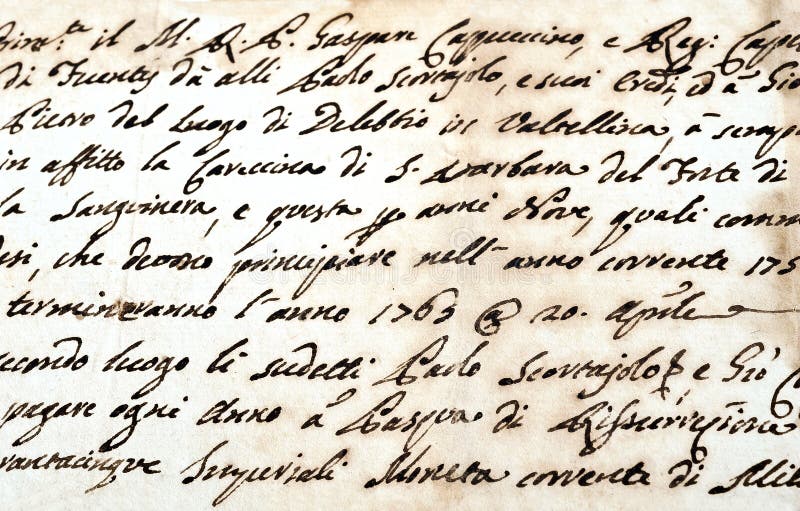 il M. R. P. Gaspare Cappuccino, e Reg:
di Fuentes dà alli Paolo Scortajolo, e suoi Eredi, ed à Gio
Piero del Luogo di Delebbio in Valtellina, à
in affitto la Careccina di S. Barbara del Forte di
la Sanguinera, e questa p anni Nove, quali
che devono principiare nell' anno corrente 175
termineranno l'anno 1763 @ 20. Aprile
econdo luogo li sudetti Paolo Scortajolo, e Gio
pagare ogni Anno à Pasqua di Rissurrezione
rantacinque Imperiali Moneta corrente di Mil